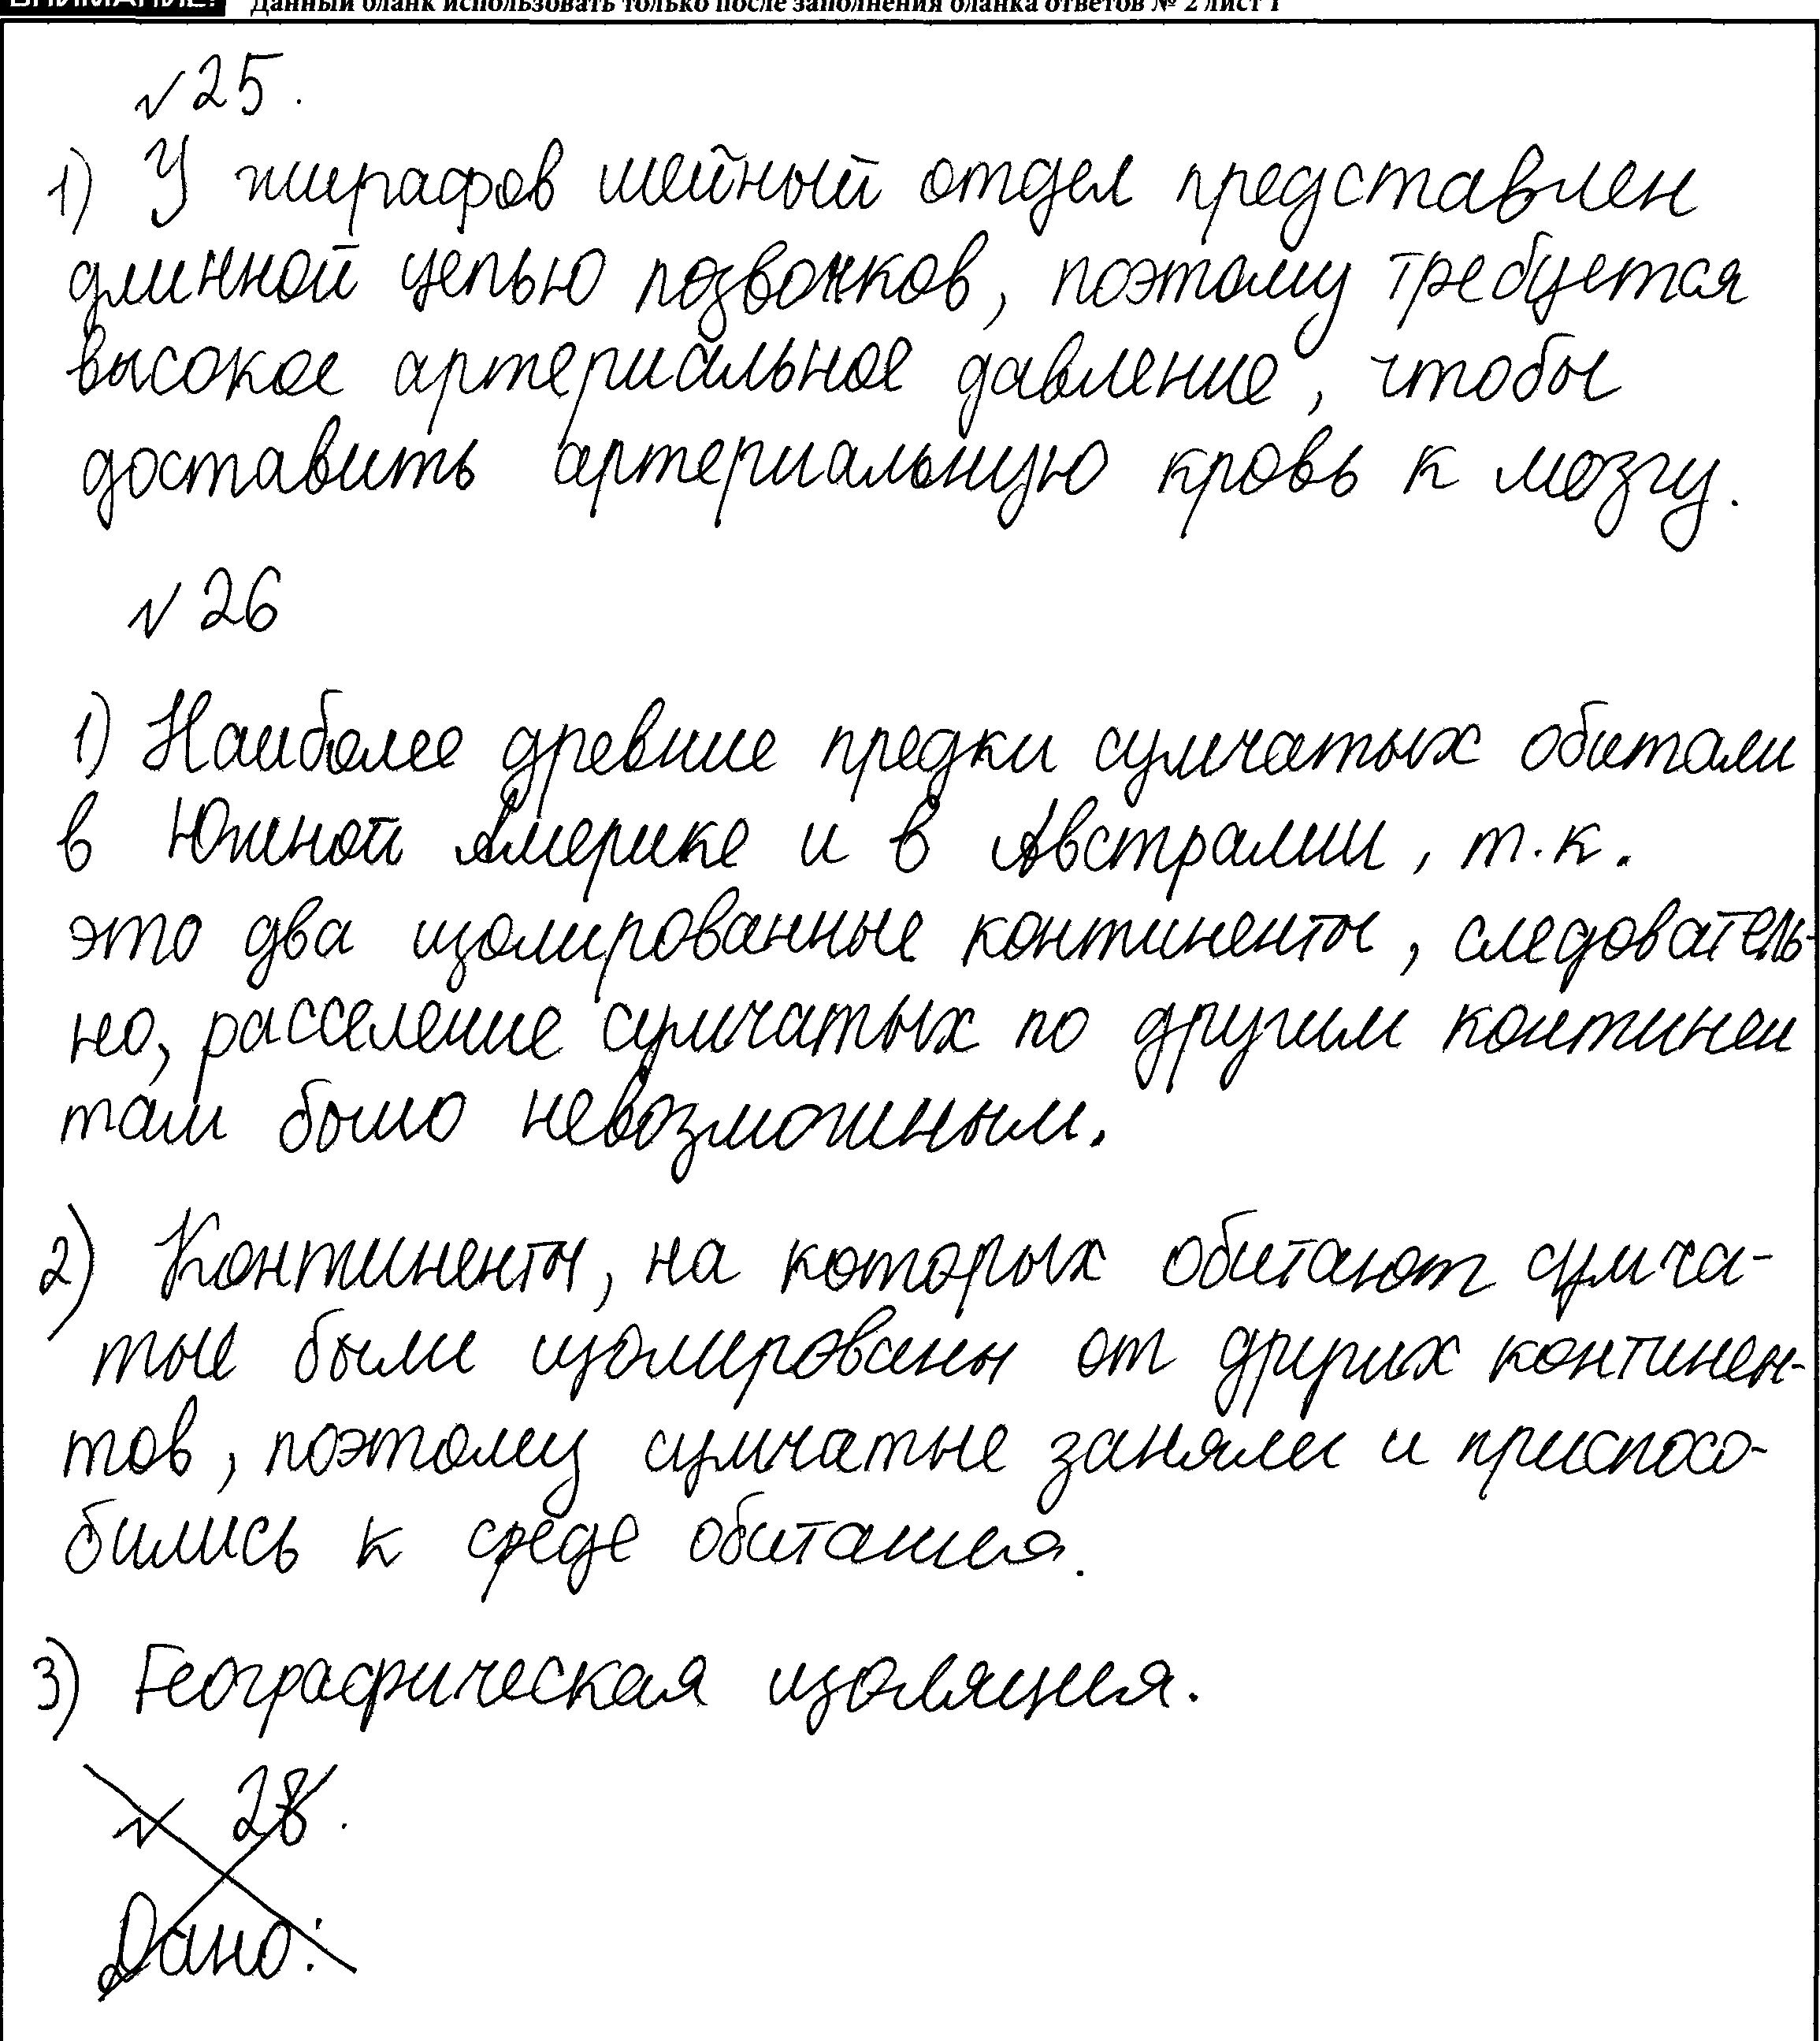 ВНИМАНИЕ! Данный бланк использовать только после заполнения бланка ответов № 2 лист 1
№ 25.
1) У жирафов шейный отдел представлен
длинной цепью позвонков, поэтому требуется
высокое артериальное давление, чтобы
доставить артериальную кровь к мозгу.
№ 26
1) Наиболее древние предки сумчатых обитали
в Южной Америке и в Австралии, т.к.
это два изолированные континенты, следователь-
но, расселение сумчатых по другим континен
там было невозможным.
2) Континенты, на которых обитают сумча-
тые были изолированы от других континен-
тов, поэтому сумчатые заняли и приспосо-
бились к среде обитания.
3) Географическая изоляция.
№ 28.
Дано: